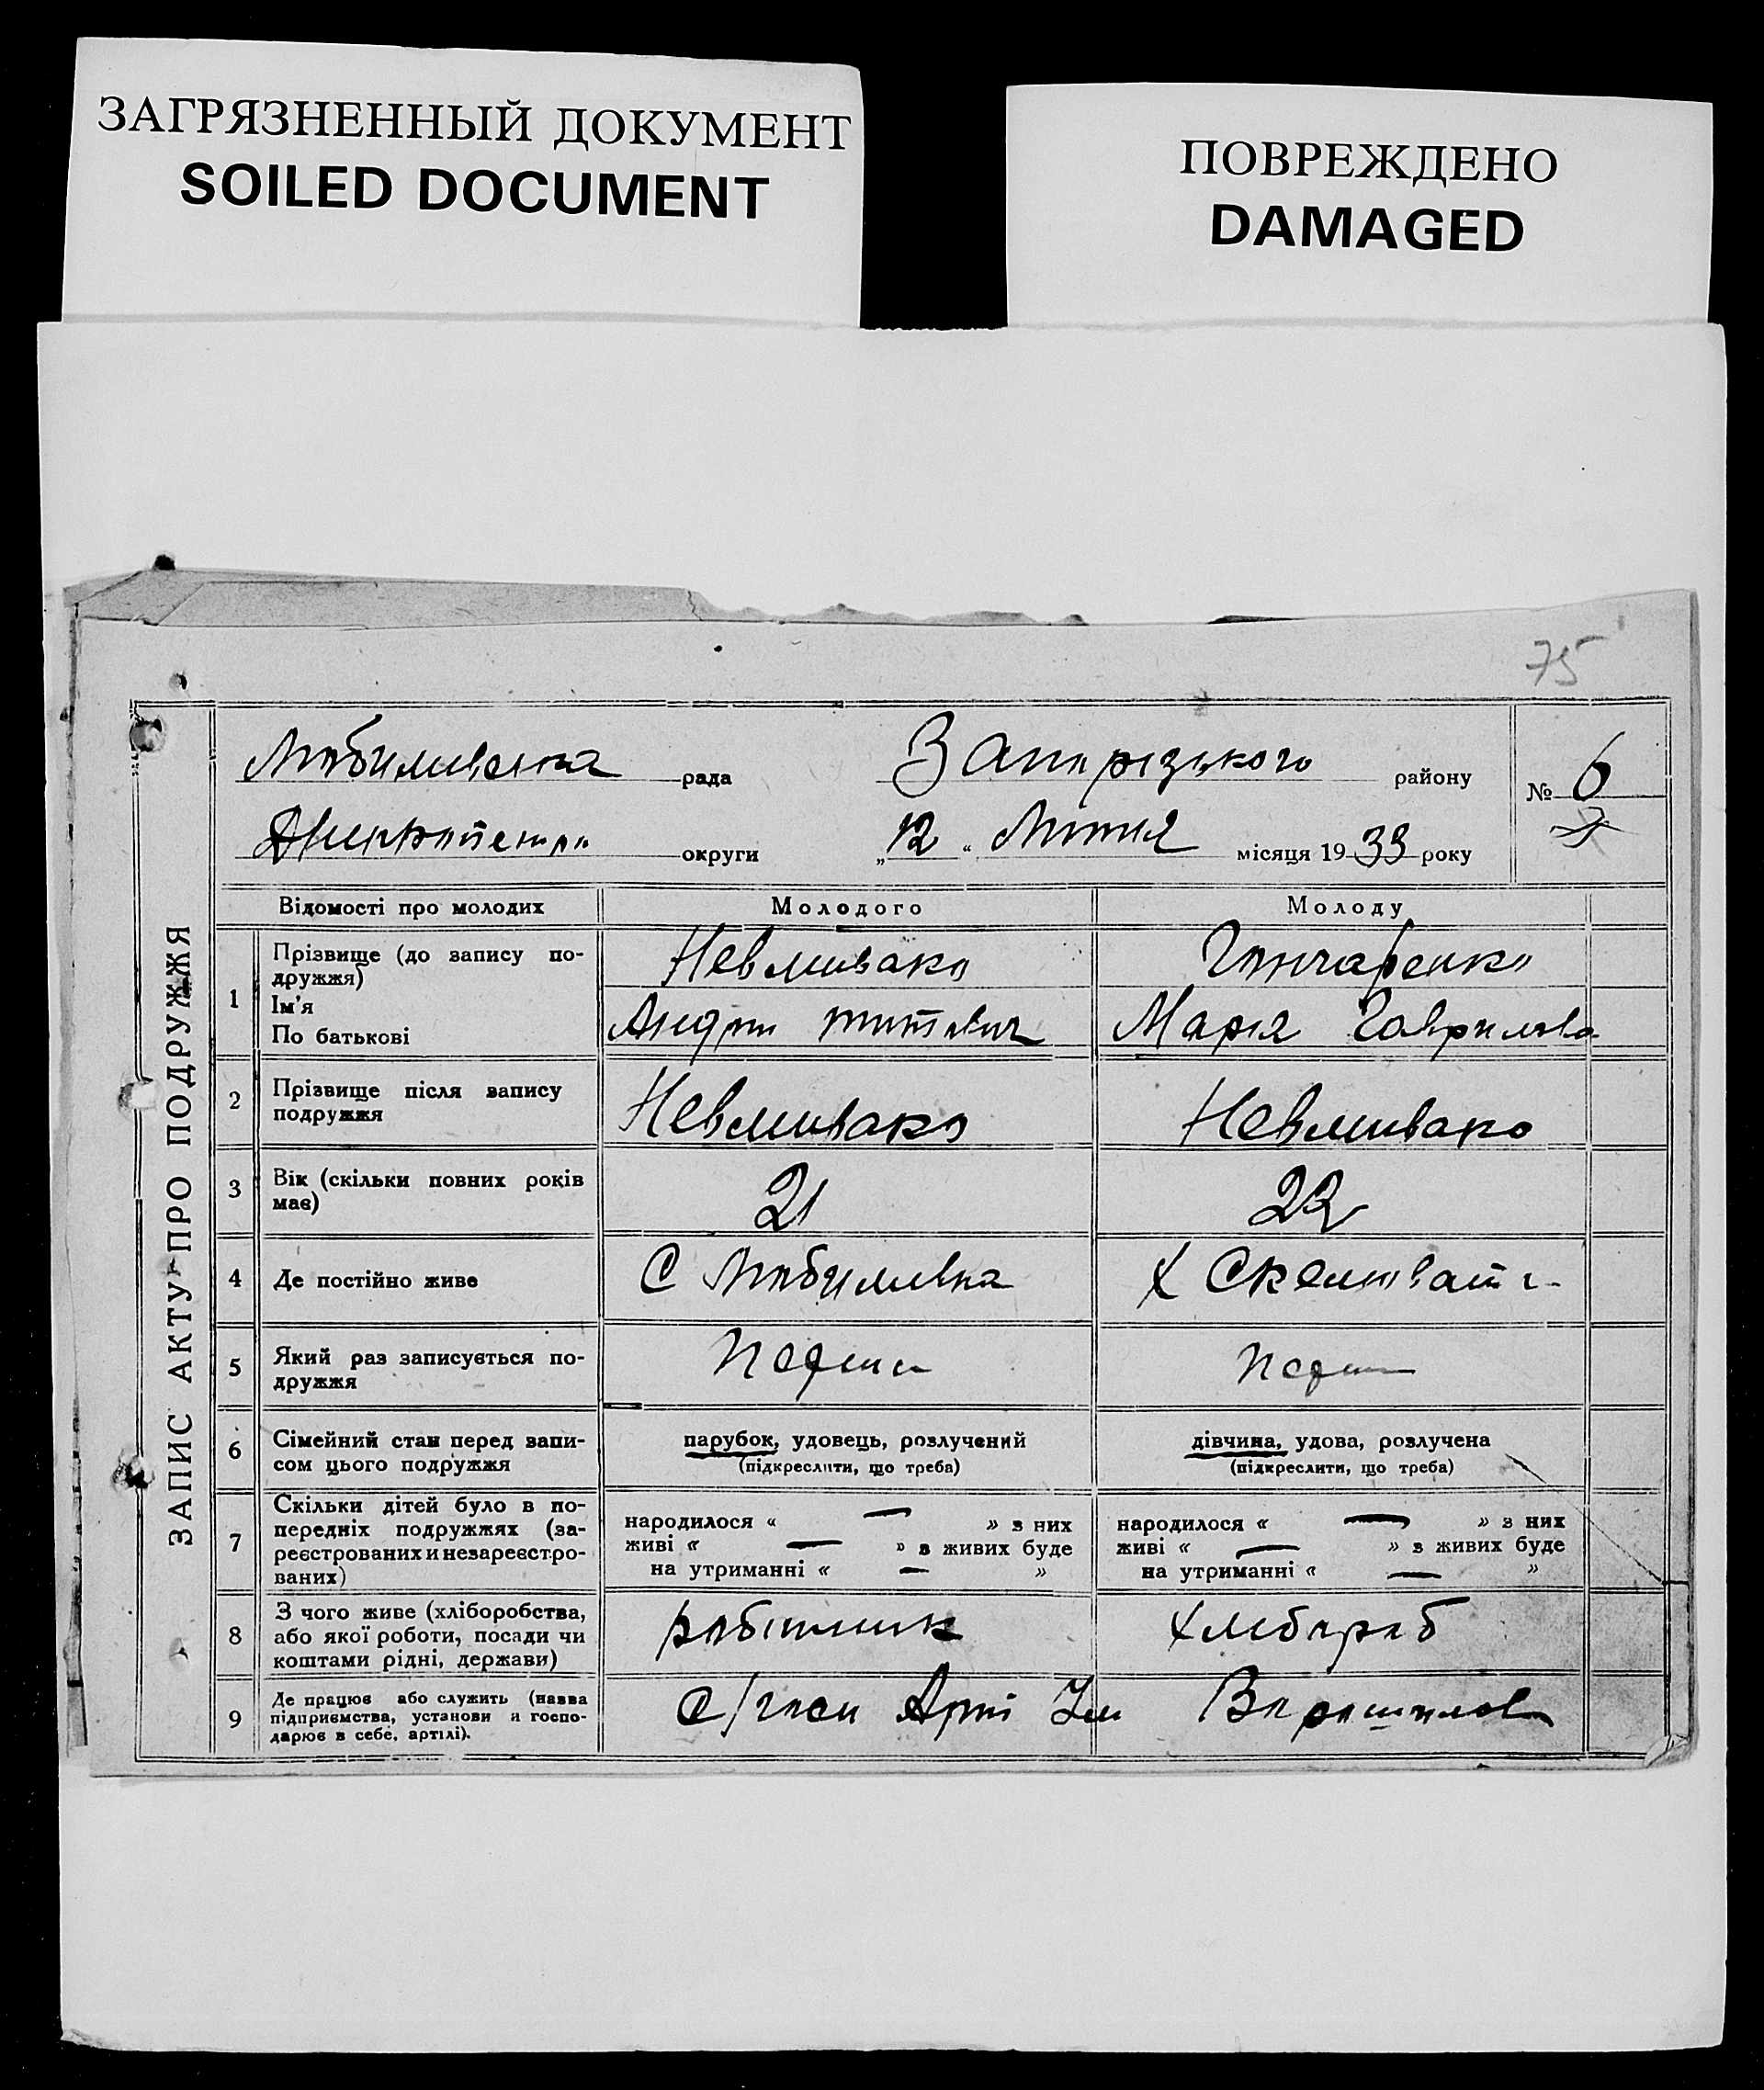 ЗАГРЯЗНЕННЫЙ ДОКУМЕНТ
SOILED DOCUMENT
ПОВРЕЖДЕНО
DAMAGED
75
ЗАПИС АКТУ ПРО ПОДРУЖЖЯ
Любимивська рада Запорізького району № 6
округи „12“ Лютия місяця 1933 року
Відомості про молодих Молодого Молоду
1 Прізвище (до запису по-
дружжя) Невмивако Гончаренко
Ім'я
По батькові Андрій Титович Марія Гаврилова
2 Прізвище після запису
подружжя Невмивако Невмивако
3 Вік (скільки повних років
має) 21 22
4 Де постійно живе С Любимивка Х Скелювати
5 Який раз записується по-
дружжя Перши Перши
6 Сімейний стан перед запи-
сом цього подружжя парубок, удовець, розлучений дівчина, удова, розлучена
(підкреслити, що треба) (підкреслити, що треба)
7 Скільки дітей було в по-
передніх подружжях (за-
реєстрованих и незареєстро-
ваних)
народилося « — » з них народилося « — » з них
живі « — » з живих буде живі « — » з живих буде
на утриманні « — » на утриманні « — »
8 З чого живе (хліборобства,
або якої роботи, посади чи
коштами рідні, держави) робітник хлебороб
9 Де працює або служить (назва
підприємства, установи и госпо-
дарює в себе, артілі). С/госп Арті Ім Ворошилов